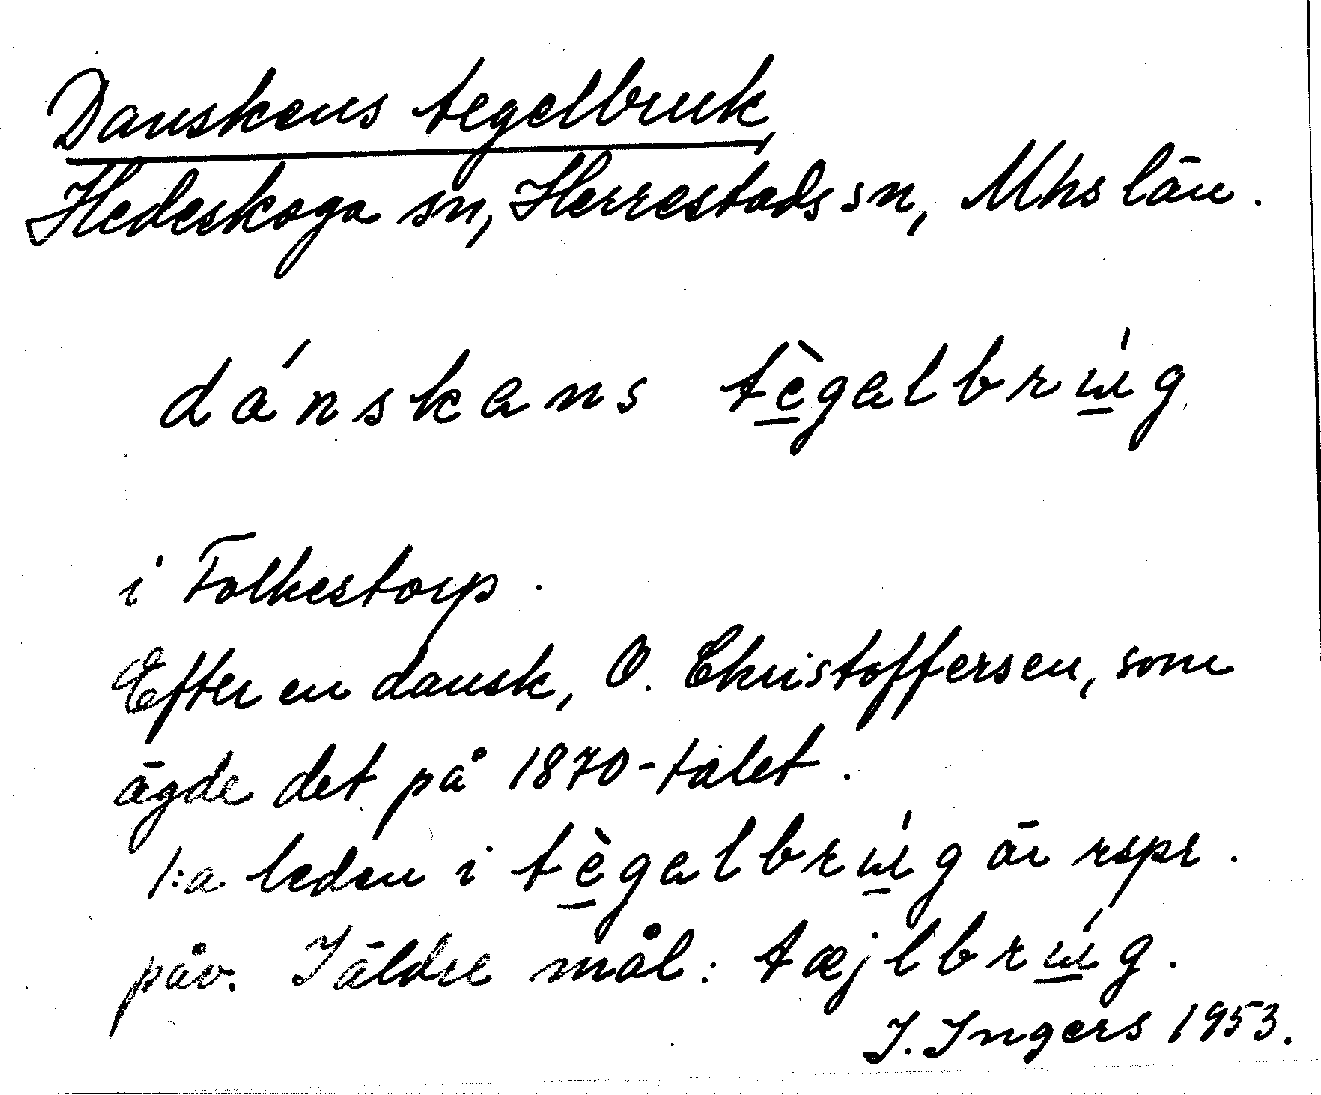 Danskens tegelbruk,
Hedeskoga sn, Herrestads sn, Mhs län.
dánskans tègalbrúg
i Folkestorp.
Efter en dansk, O. Christoffersen, som
ägde det på 1870-talet.
1:a leden i tègalbrúg är rspr.
påv. I äldre mål: tæjlbrúg.
I. Ingers 1953.